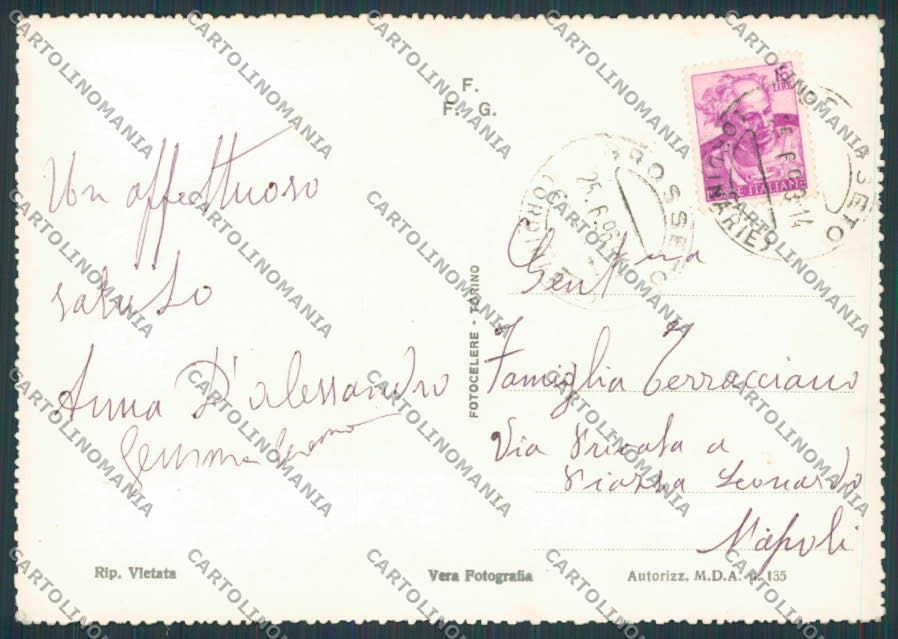 F.
F. G.
Un affettuoso
saluto
Anna D'Alessandro
Gemma
FOTOCELERE - TORINO
GROSSETO
25.6.
GROSSETO
ORDINARIE
LIRE
POSTE ITALIANE
Gent.ma
Famiglia Terracciano
Via Privata a
Piazza Leonardo
Napoli
Rip. Vietata
Vera Fotografia
Autorizz. M.D.A. n. 135
CARTOLINOMANIA